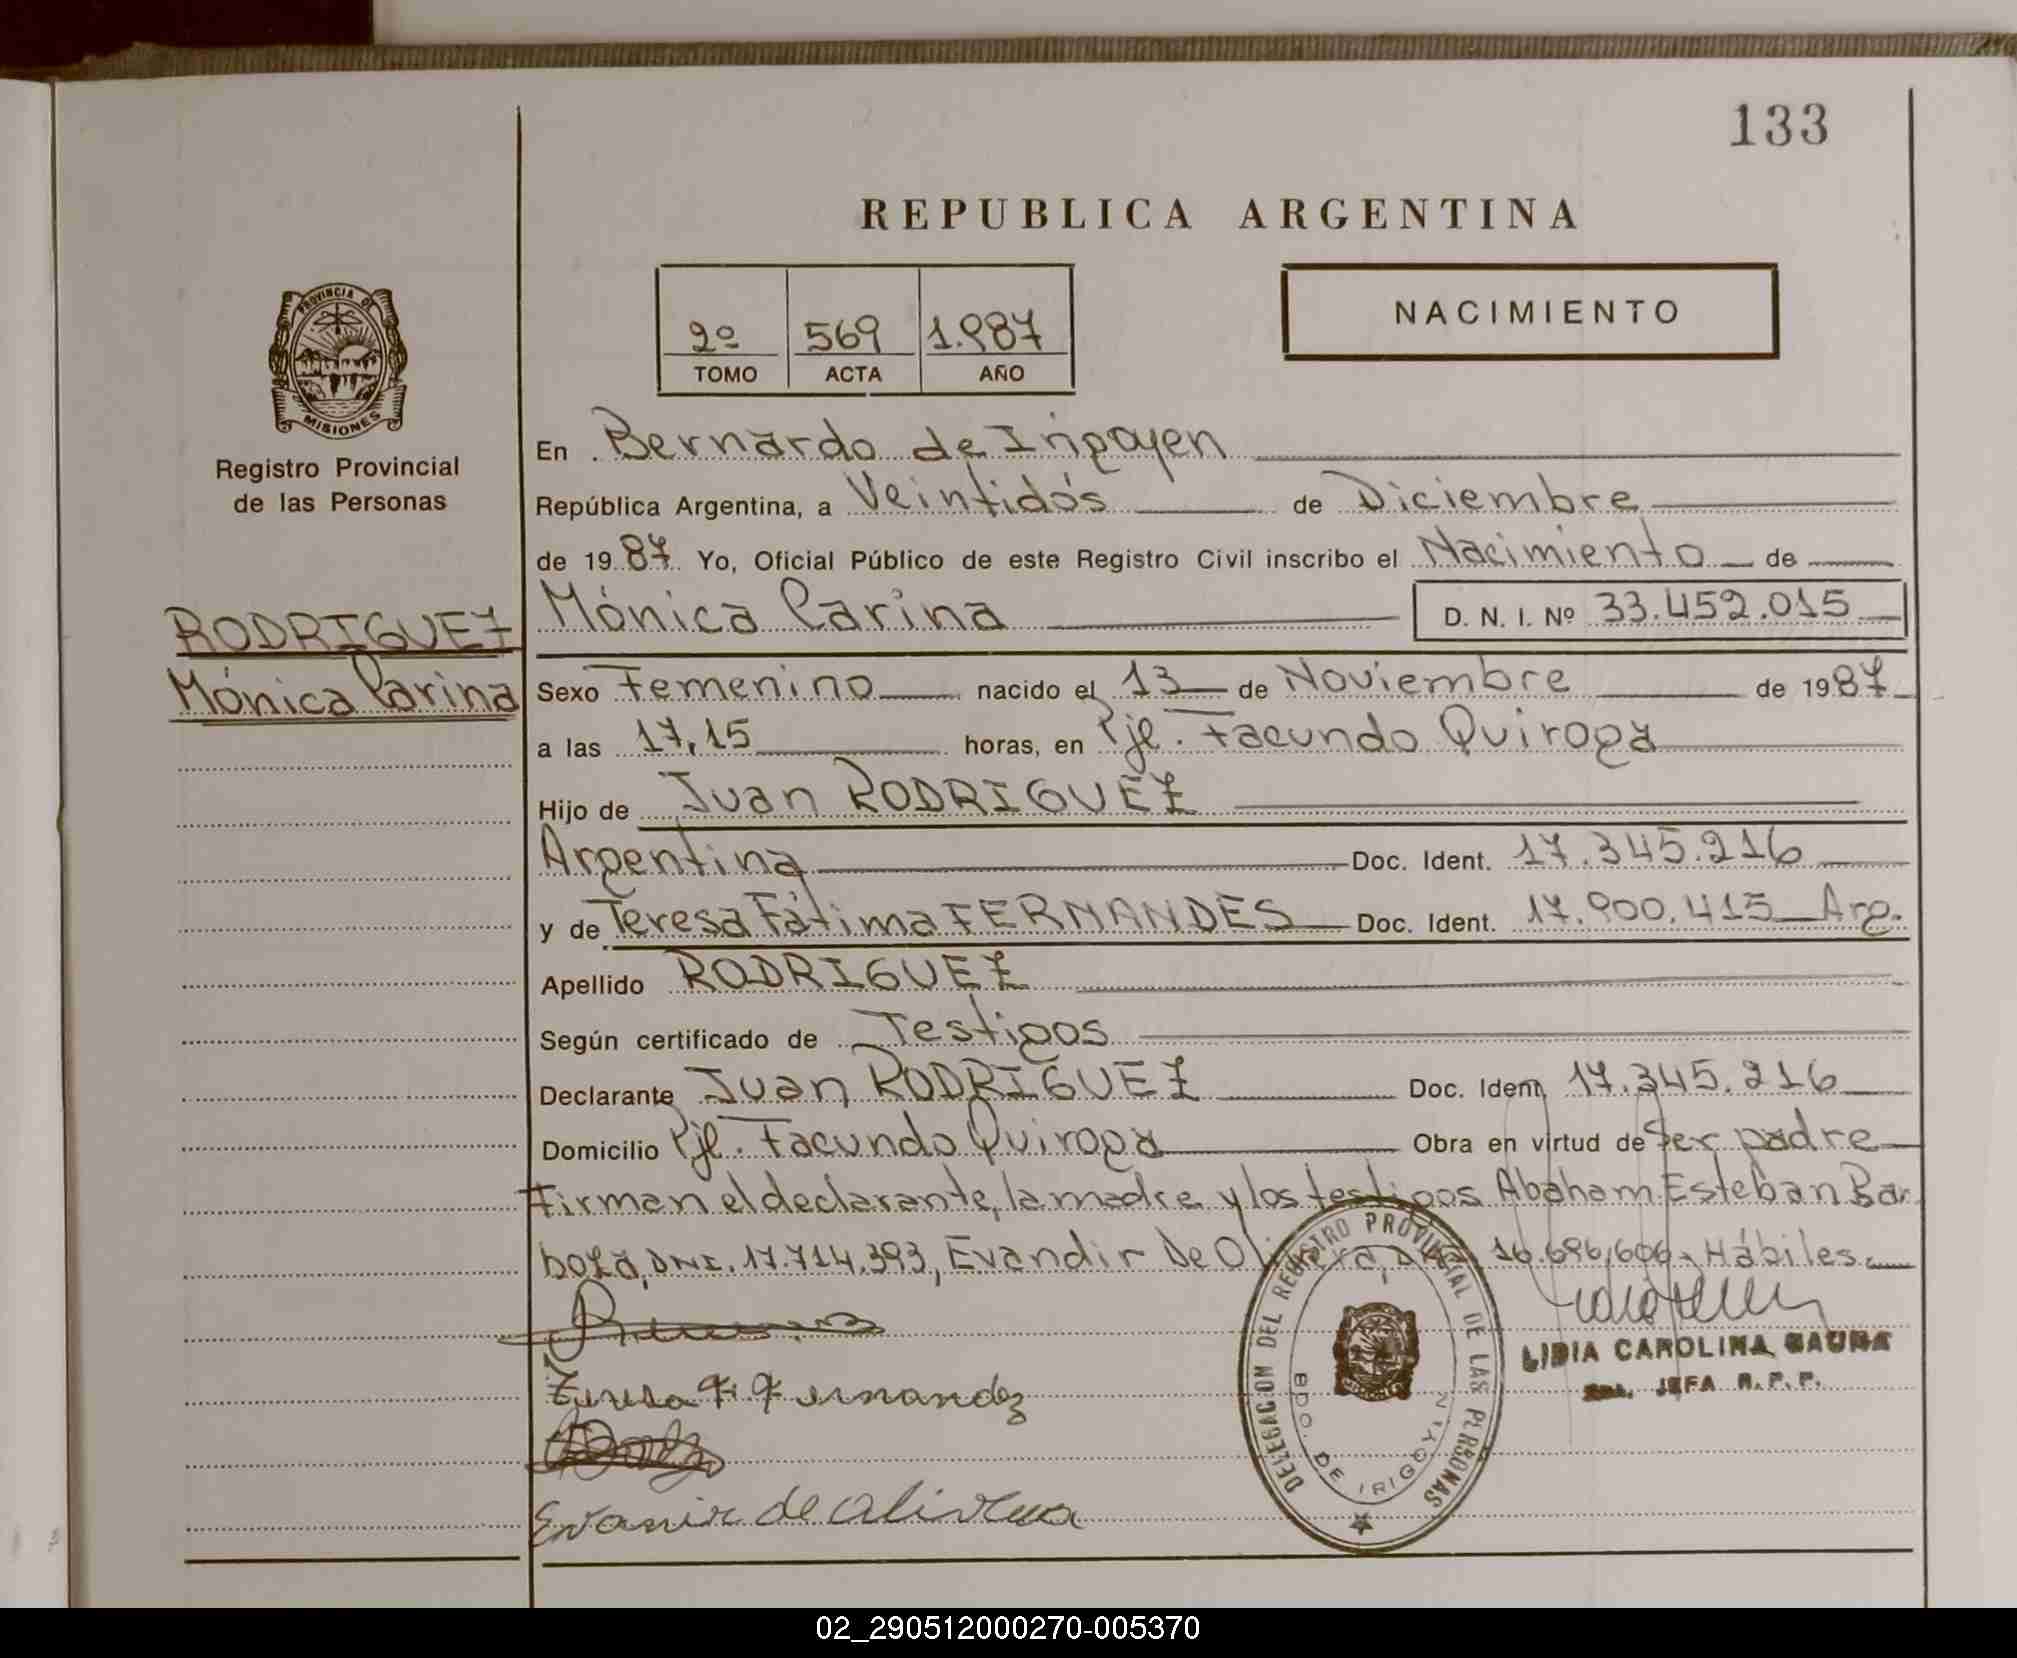 133
REPUBLICA ARGENTINA
2º 569 1.987
TOMO ACTA AÑO
NACIMIENTO
PROVINCIA DE
MISIONES
Registro Provincial
de las Personas
RODRIGUEZ
Mónica Carina
En Bernardo de Irigoyen
República Argentina, a Veintidós de Diciembre
de 1987 Yo, Oficial Público de este Registro Civil inscribo el Nacimiento de
Mónica Carina D. N. I. Nº 33.452.015
Sexo Femenino nacido el 13 de Noviembre de 1987
a las 17,15 horas, en Pje. Facundo Quiroga
Hijo de Juan RODRIGUEZ
Argentina Doc. Ident. 17.345.216
y de Teresa Fátima FERNANDES Doc. Ident. 17.900.415 Arg.
Apellido RODRIGUEZ
Según certificado de Testigos
Declarante Juan RODRIGUEZ Doc. Ident. 17.345.216
Domicilio Pje. Facundo Quiroga Obra en virtud de Ser padre
Firman el declarante, la madre y los testigos Abaham Esteban Bar
boza, DNI. 17.714.393, Evandir De Oliveira, DNI 16.696.606. Hábiles.
Teresa F. Fernandez
Evanir de Oliveira
DELEGACION DEL REGISTRO PROVINCIAL DE LAS PERSONAS
BDO. DE IRIGOYEN
LIDIA CAROLINA
JEFA R.P.P.
02_290512000270-005370